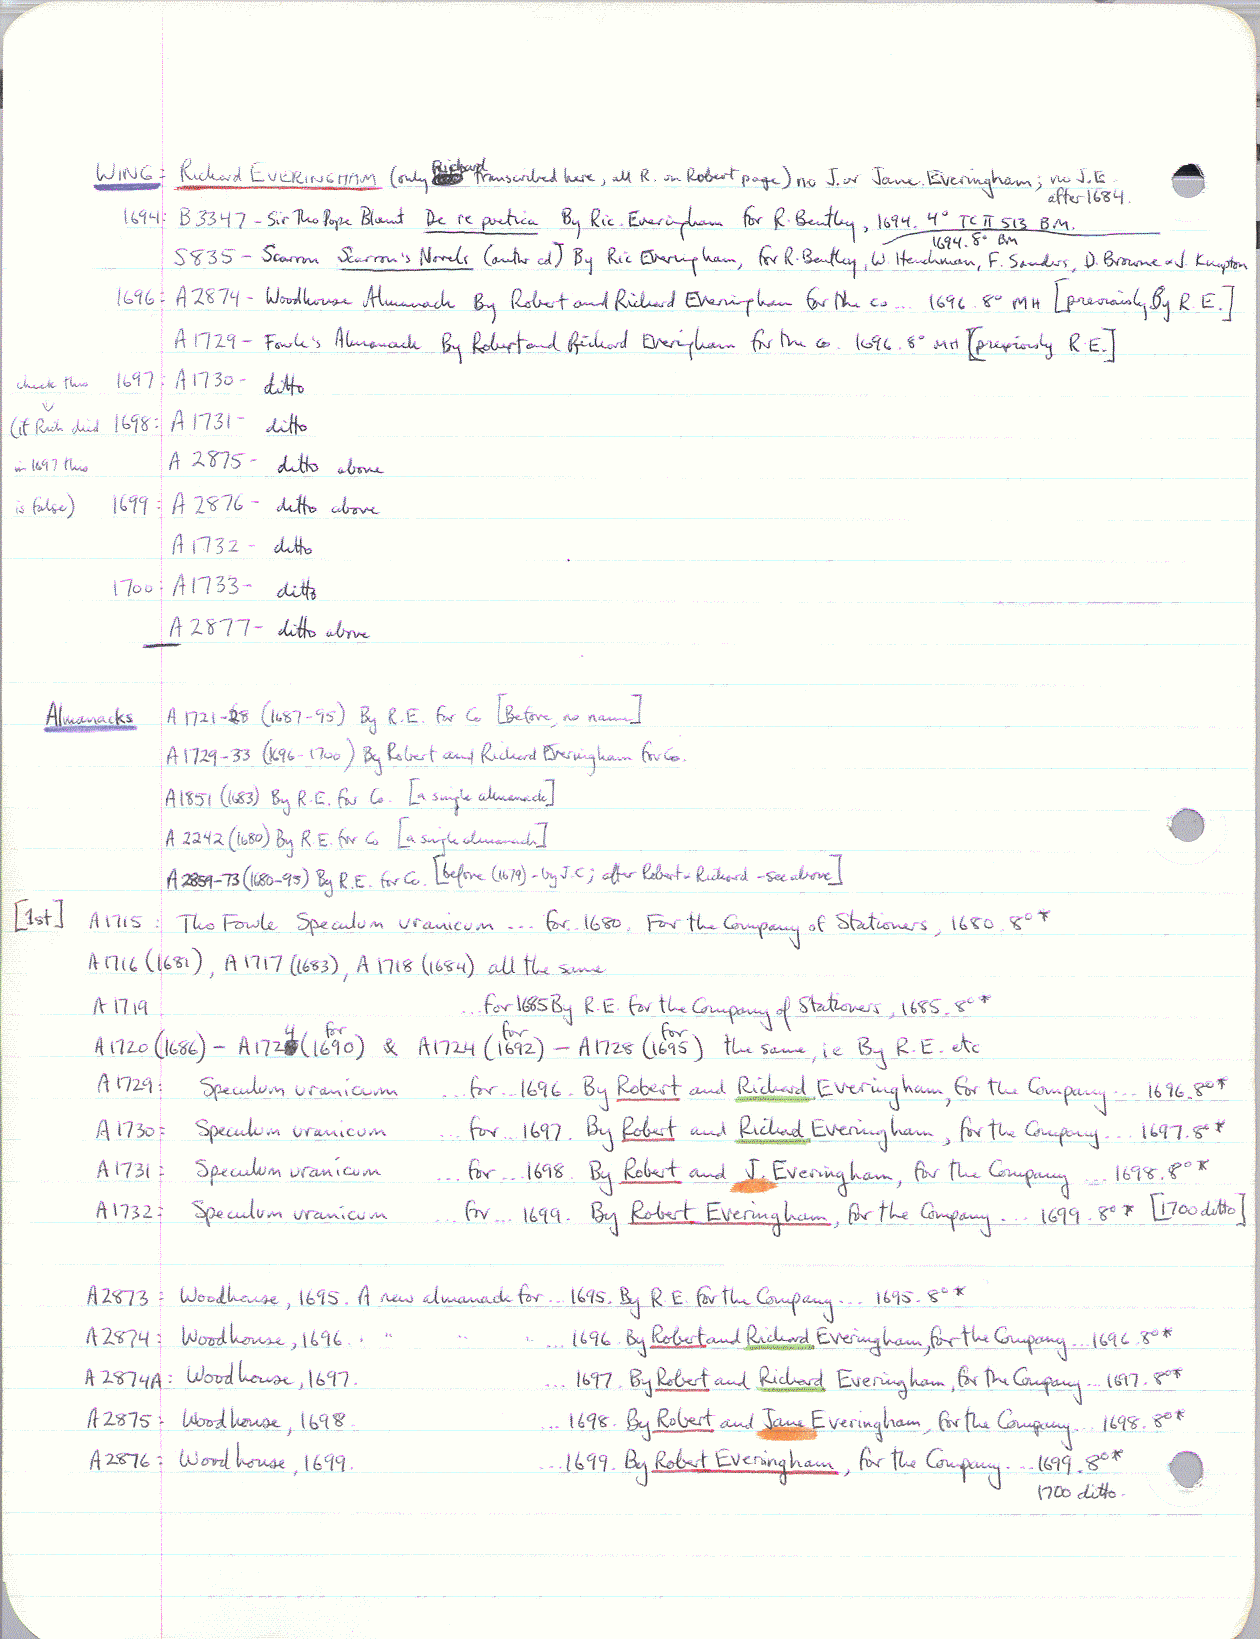 WING: Richard EVERINGHAM (only Richard transcribed here, all R. on Robert page) no J. or Jane Everingham; no J.E.
after 1684.
1694: B3347 - Sir Tho Pope Blount De re poetica By Ric. Everingham for R. Bentley, 1694. 4° TC II 513 B.M.
1694. 8° BM
S835 - Scarron Scarron's Novels (anthr ed) By Ric Everingham, for R. Bentley, W. Henchman, F. Sanders, D. Browne & J. Knapton
1696: A2874 - Woodhouse Almanack By Robert and Richard Everingham for the co ... 1696. 8° MH [previously By R.E.]
A1729 - Fowle's Almanack By Robert and Richard Everingham for the co. 1696. 8° MH [previously R.E.]
check this 1697: A1730 - ditto
(if Rich died 1698: A1731 - ditto
in 1697 this A2875 - ditto above
is false) 1699: A2876 - ditto above
A1732 - ditto
1700: A1733 - ditto
A2877 - ditto above
Almanacks A1721-28 (1687-95) By R.E. for Co [Before, no name]
A1729-33 (1696-1700) By Robert and Richard Everingham for Co.
A1851 (1683) By R.E. for Co. [a single almanack]
A2242 (1680) By R.E. for Co [a single almanack]
A2859-73 (1680-95) By R.E. for Co. [before (1679) - by J.C; after Robert & Richard - see above]
[1st] A1715: Tho Fowle Speculum uranicum ... for.. 1680. For the Company of Stationers, 1680. 8°*
A1716 (1681), A1717 (1683), A1718 (1684) all the same
A1719 ...for 1685 By R.E. for the Company of Stationers, 1685. 8°*
A1720 (1686) - A1724 (for 1690) & A1724 (for 1692) - A1728 (for 1695) the same, ie By R.E. etc
A1729: Speculum uranicum ...for.. 1696. By Robert and Richard Everingham, for the Company ... 1696. 8°*
A1730: Speculum uranicum ...for.. 1697. By Robert and Richard Everingham, for the Company ... 1697. 8°*
A1731: Speculum uranicum ...for ... 1698. By Robert and J. Everingham, for the Company ... 1698. 8°*
A1732: Speculum uranicum ...for ... 1699. By Robert Everingham, for the Company ... 1699. 8°* [1700 ditto]
A2873: Woodhouse, 1695. A new almanack for ... 1695. By R.E. for the Company ... 1695. 8°*
A2874: Woodhouse, 1696. " " " " ... 1696. By Robert and Richard Everingham, for the Company ... 1696. 8°*
A2874A: Woodhouse, 1697. ... 1697. By Robert and Richard Everingham, for the Company ... 1697. 8°*
A2875: Woodhouse, 1698. ... 1698. By Robert and Jane Everingham, for the Company ... 1698. 8°*
A2876: Woodhouse, 1699. ... 1699. By Robert Everingham, for the Company ... 1699. 8°*
1700 ditto.